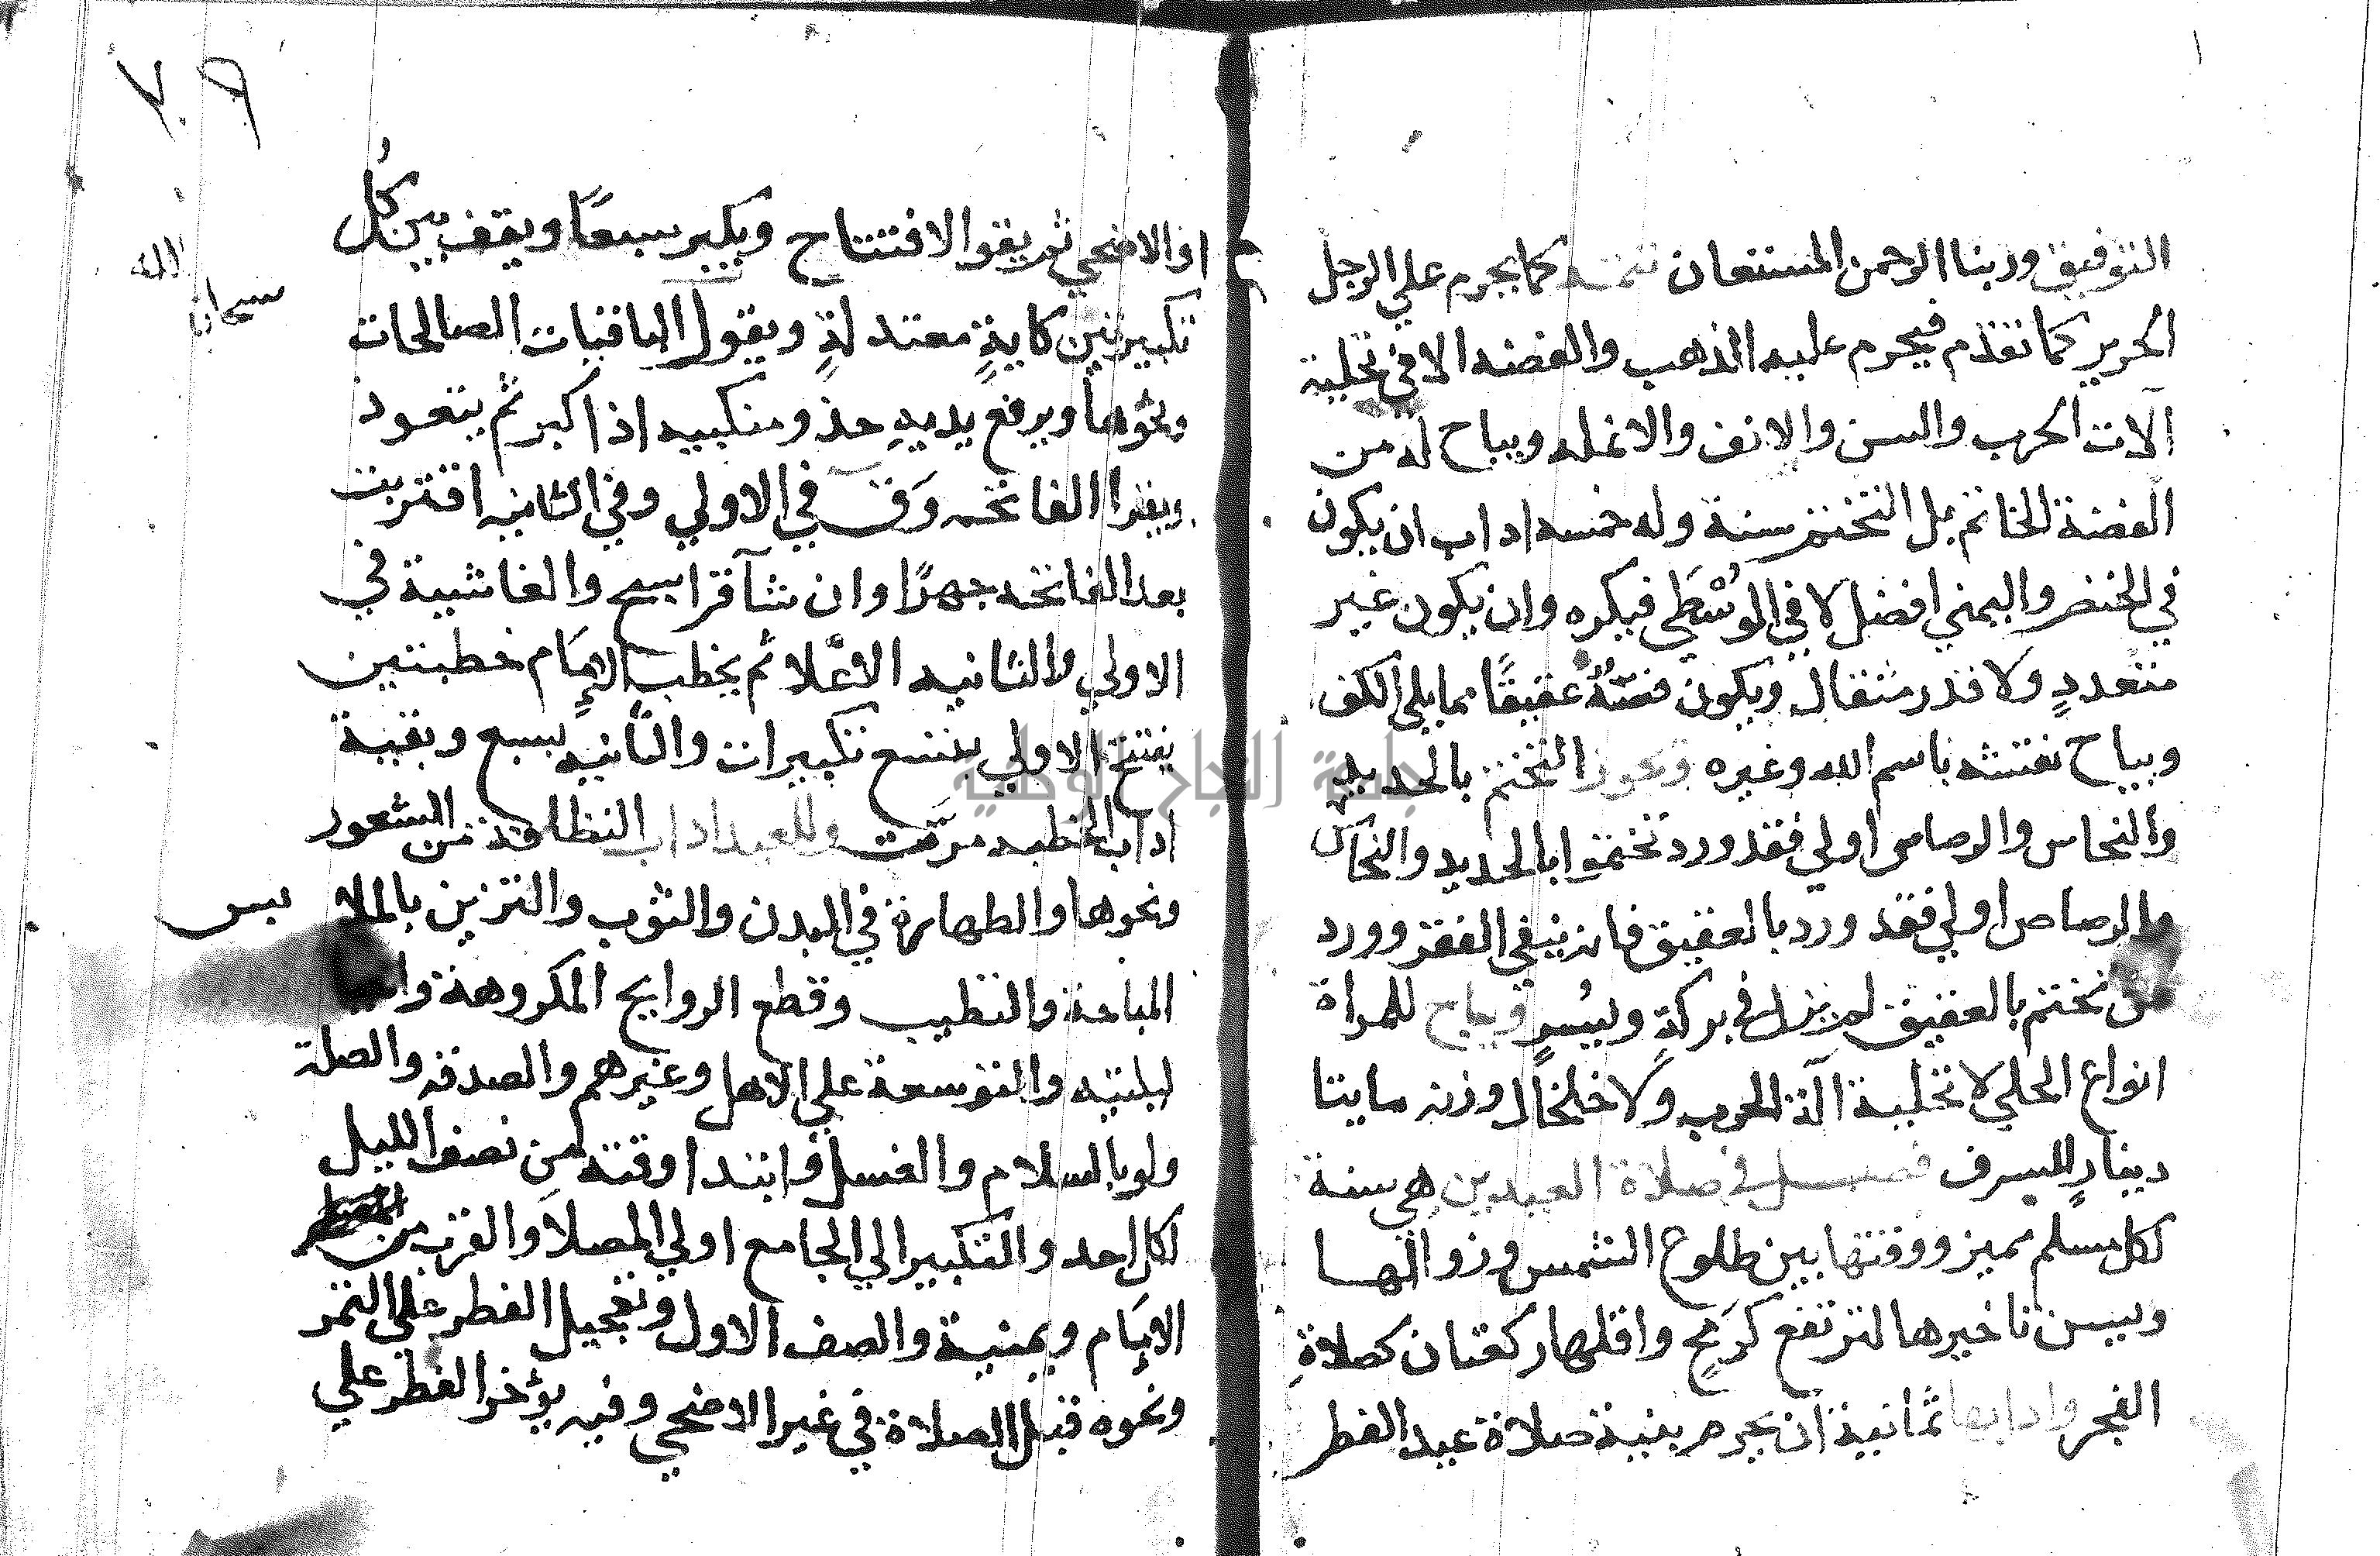 التوفيق وربنا الرحمن المستعان تتمه كما يحرم علي الرجل
الحرير كما تقدم فيحرم عليه الذهب والفضه الا في تحلية
آلات الحرب والسن والانف والانمله ويباح له من
الفضة الخاتم بل التختم سنة وله خمسه اداب ان يكون
في الخنصر واليمني افضل لا في الوُسْطَي فيكره وان يكون غير
متعددٍ ولا قدر مثقال ويكون فصّهُ عقيقًا مما يلي الكف
ويباح نقشه باسم الله وغيره ويجوز التختم بالحديد
والنحاس والرصاص اولي فقد ورد تختموا بالحديد والنحاس
والرصاص اولي فقد ورد بالعقيق فانه ينفي الفقر وورد
من تختم بالعقيق لم يزل في بركةٍ ويُسرٍ ويباح للمراة
انواع الحلي لا تحلية آلة الحرب ولا خلخال وزنه مايتا
دينارٍ للسرف فصل في صلاة العيدين هي سنة
لكل مسلم مميز ووقتها بين طلوع الشمس وزوالها
ويسن تاخيرها لترتفع كرَمحٍ واقلها ركعتان كصلاةِ
الفجر وادابها ثمانية ان يحرم بنية صلاة عيد الفطر
٧٩
او الاضحي ثم يقرا الافتتاح ويكبر سبعًا ويقف بين كُل
تكبيرتين كايةٍ معتدلةٍ ويقول الباقيات الصالحات
سبحان الله
ونحوها ويرفع يديهِ حذو منكبيه اذا كبر ثم يتعوذ
ويقرا الفاتحه وَق في الاولي وفي الثانيه اقتربت
بعد الفاتحه جهرًا وان شآ قرا سبح والغاشية في
الاولي والثانيه الاعَلا ثم يخطب الامَام خطبتين
يفتتح الاولي بتسع تكبيرات والثانيه بسبع وبقية
اداب الخطبه مرّت وللعيد اداب النظافة من الشعور
ونحوها والطهارة في البدن والثوب والتزين بالملابس
المباحة والتطيب وقطع الروايح المكروهة واحيا
ليلتيه والتوسعة علي الاهل وغيرهم والصدقه والصلة
ولو بالسلام والغسل وابتدا وقته من نصف الليل
لكل احد والتكبير الي الجامع او الي المصلا والقرب من
الامَام ويمنية والصف الاول وتعجيل الفطر علي التمر
ونحوه قبل الصلاة في غير الاضحي وفيه يؤخر الفطر علي
جامعة النجاح الوطنية